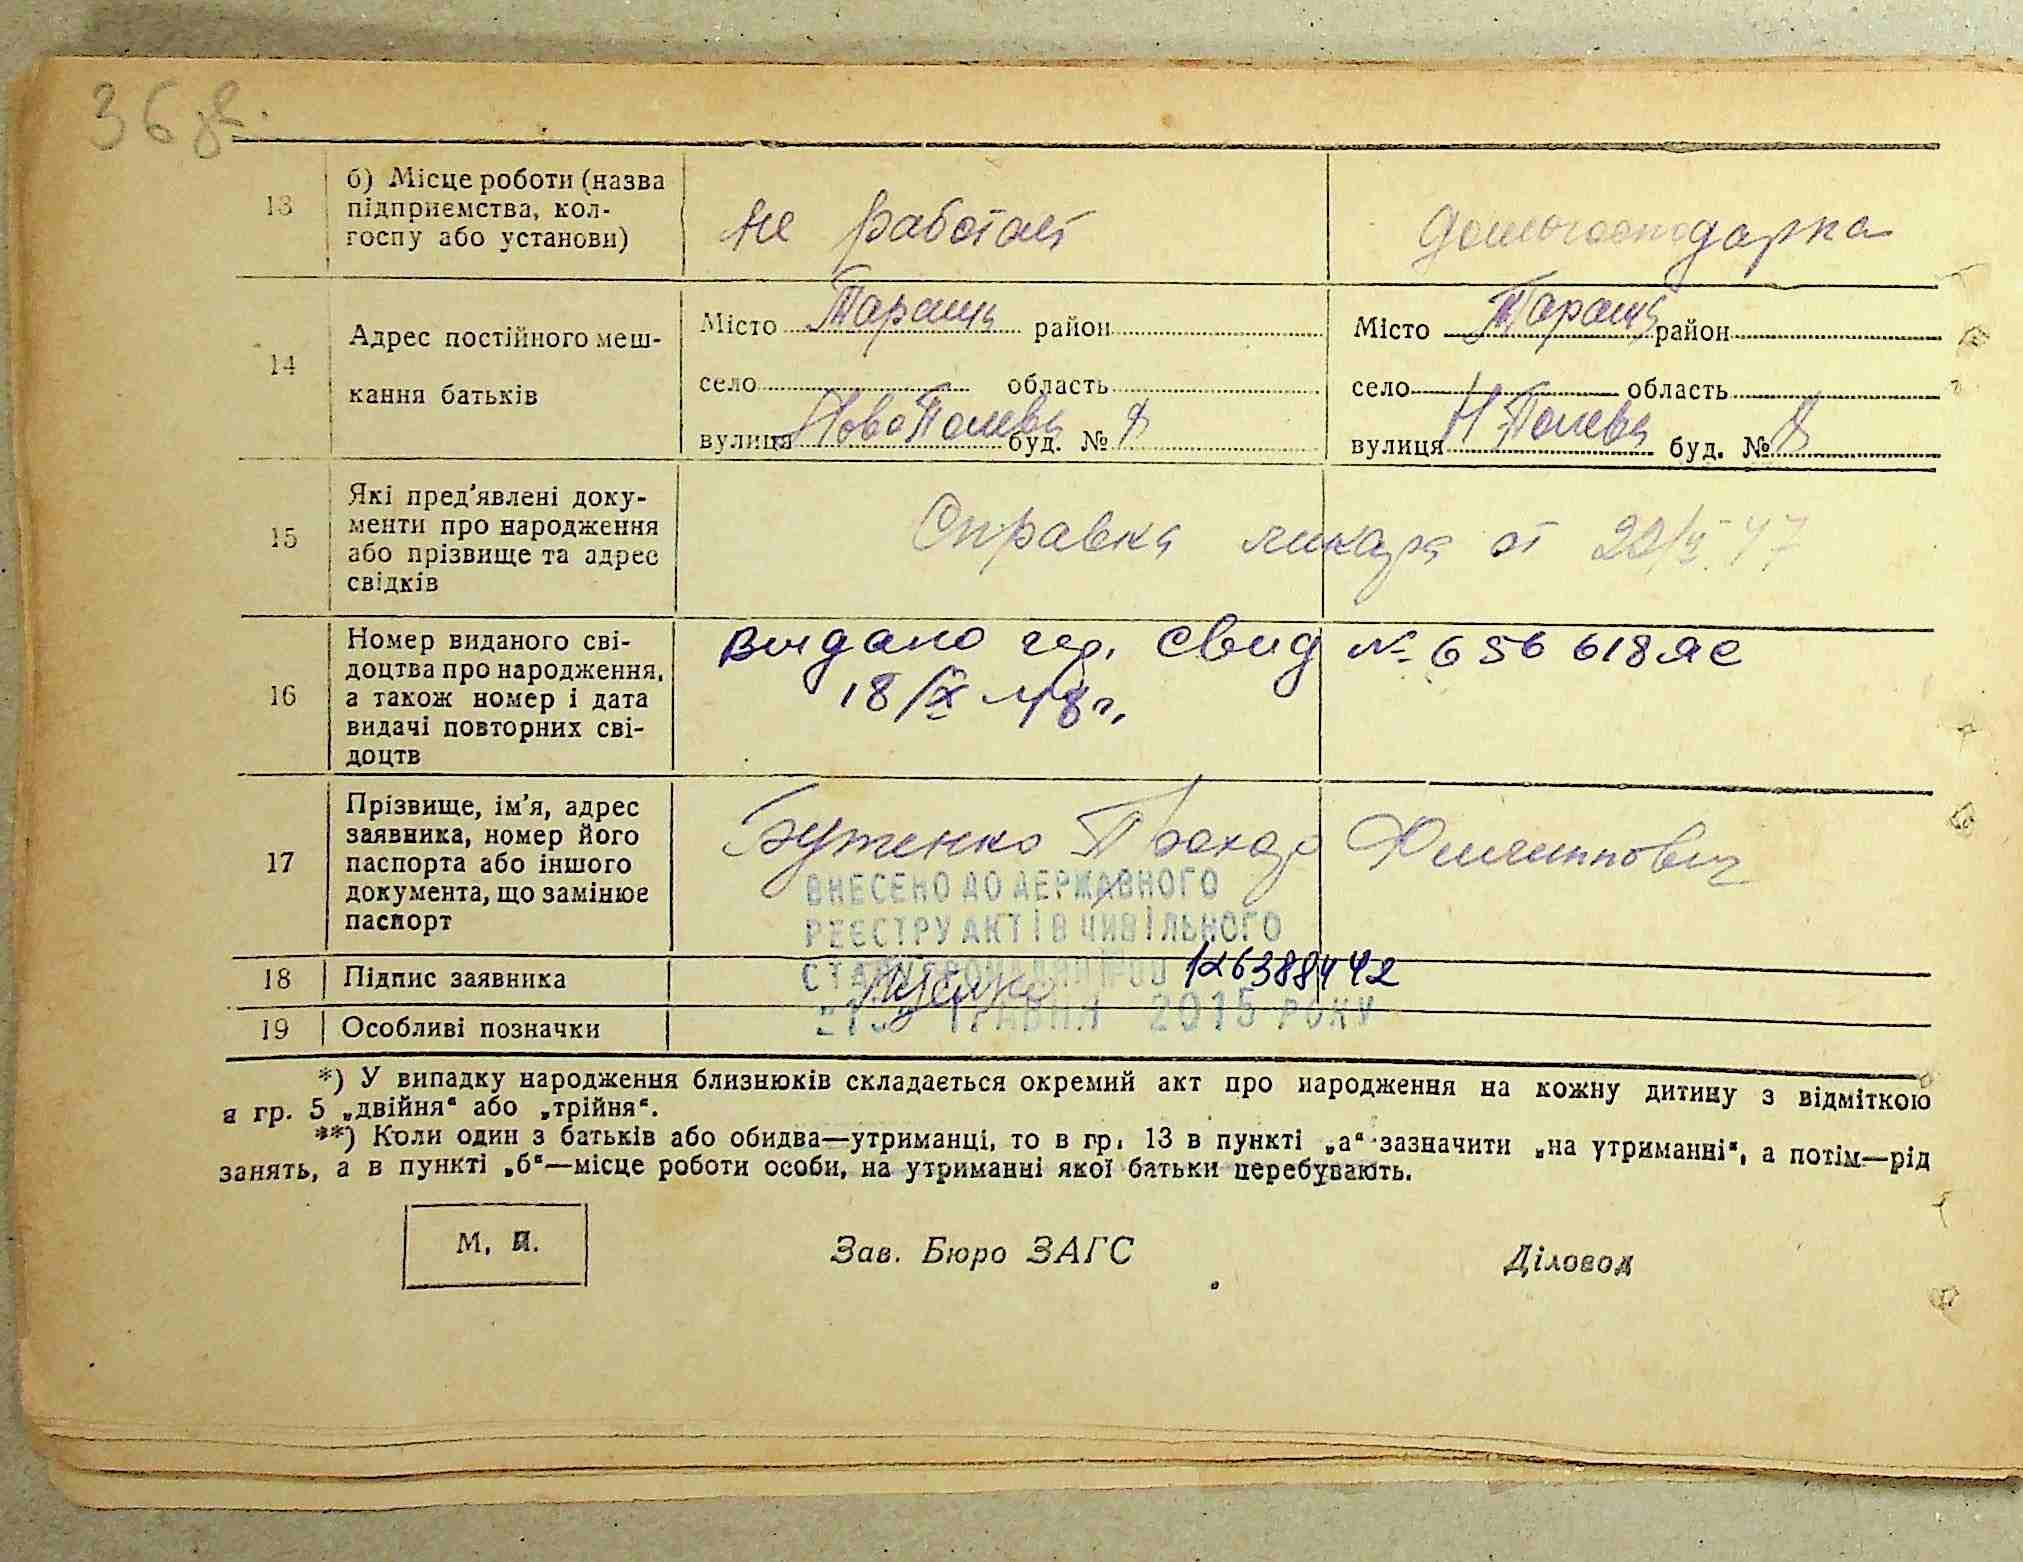 36 зв.
13
б) Місце роботи (назва
підприємства, кол-
госпу або установи)
не работает
домогосподарка
14
Адрес постійного меш-
кання батьків
Місто Тараща район
село область
вулиця НовоПолева буд. № 8
Місто Тараща район
село область
вулиця Н Полева буд. № 8
15
Які пред'явлені доку-
менти про народження
або прізвище та адрес
свідків
Справка ликаря от 20/ 47
16
Номер виданого сві-
доцтва про народження,
а також номер і дата
видачі повторних сві-
доцтв
Видано свид № 656618 ЯС
18/X 48 г.
17
Прізвище, ім'я, адрес
заявника, номер його
паспорта або іншого
документа, що замінює
паспорт
ВНЕСЕНО ДО ДЕРЖАВНОГО
РЕЄСТРУ АКТІВ ЦИВІЛЬНОГО
126388442
ТРАВНЯ 2015 РОКУ
18 Підпис заявника
19 Особливі позначки
*) У випадку народження близнюків складається окремий акт про народження на кожну дитину з відміткою
в гр. 5 „двійня“ або „трійня“.
**) Коли один з батьків або обидва—утриманці, то в гр. 13 в пункті „а“ зазначити „на утриманні“, а потім—рід
занять, а в пункті „б“—місце роботи особи, на утриманні якої батьки перебувають.
М. П.
Зав. Бюро ЗАГС
Діловод